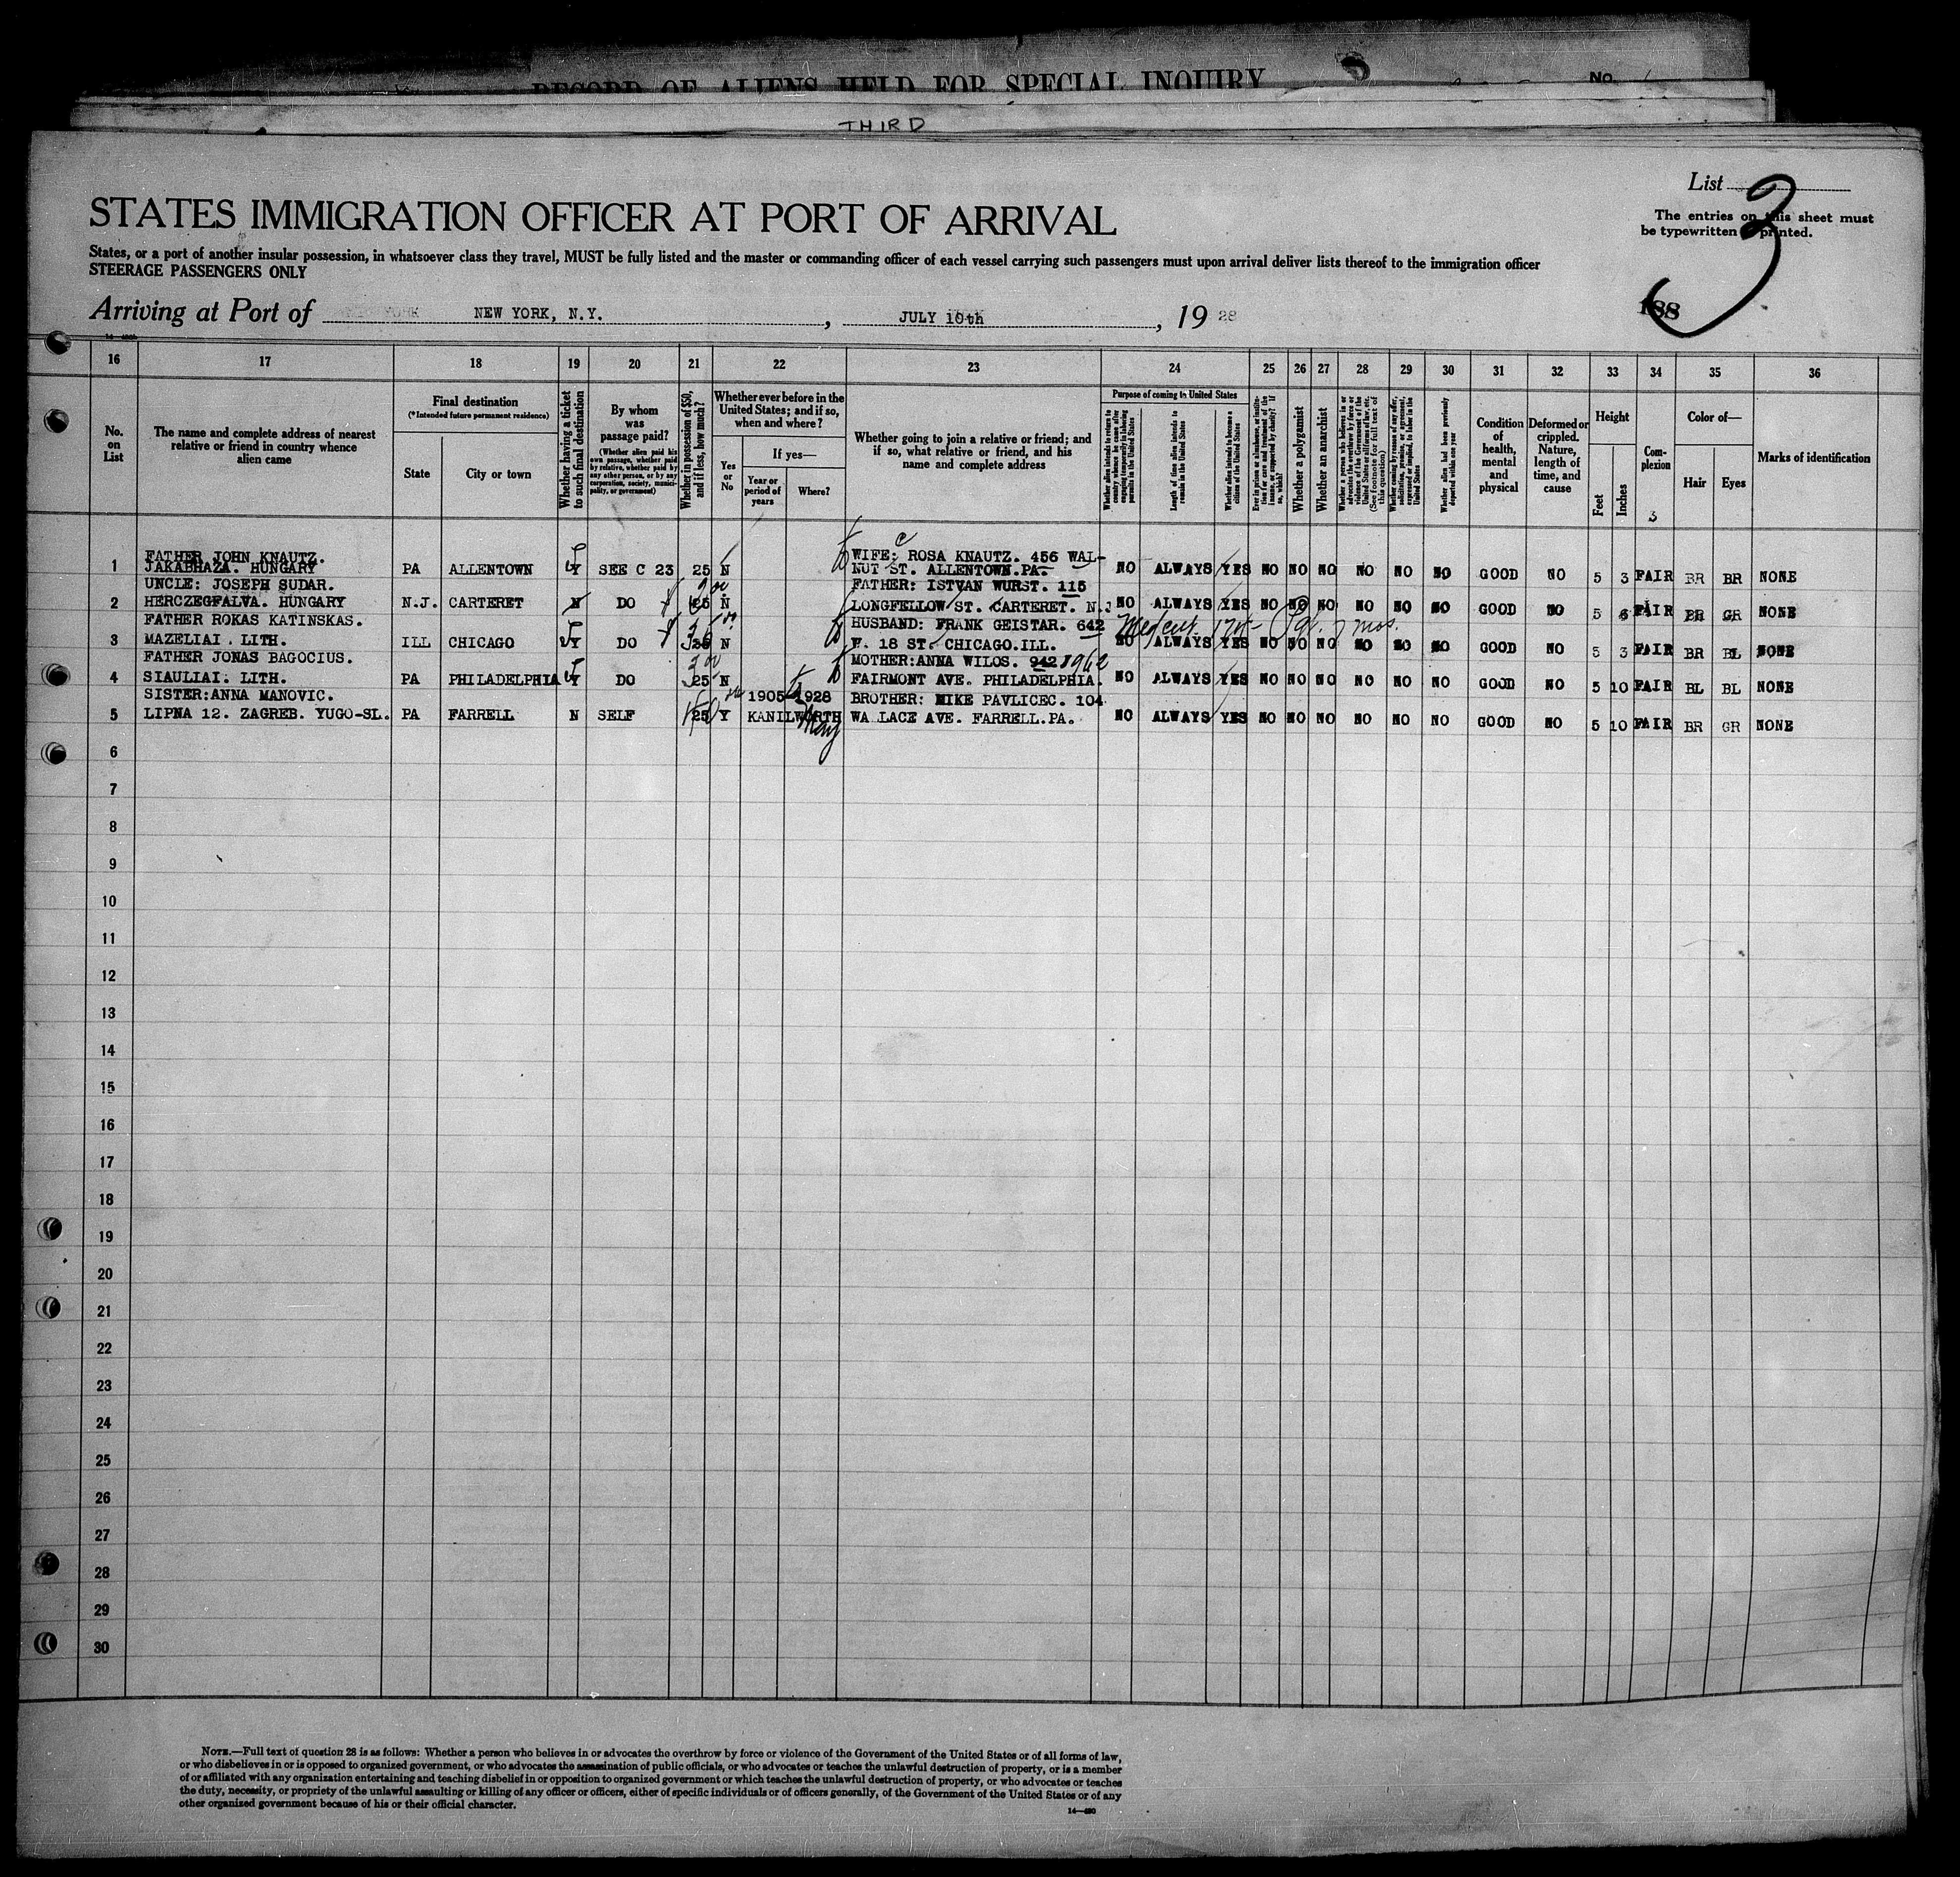 RECORD OF ALIENS HELD FOR SPECIAL INQUIRY
No.
THIRD
List 3
STATES IMMIGRATION OFFICER AT PORT OF ARRIVAL
The entries on this sheet must
be typewritten or printed.
States, or a port of another insular possession, in whatsoever class they travel, MUST be fully listed and the master or commanding officer of each vessel carrying such passengers must upon arrival deliver lists thereof to the immigration officer
STEERAGE PASSENGERS ONLY
Arriving at Port of NEW YORK, N.Y., JULY 10th, 1928
188
16 17 18 19 20 21 22 23 24 25 26 27 28 29 30 31 32 33 34 35 36
No. on List
The name and complete address of nearest relative or friend in country whence alien came
Final destination
(*Intended future permanent residence)
State
City or town
Whether having a ticket to such final destination
By whom was passage paid?
(Whether alien paid his own passage, whether paid by relative, whether paid by any other person, or by any corporation, society, municipality, or government)
Whether in possession of $50, and if less, how much?
Whether ever before in the United States; and if so, when and where?
Yes or No
If yes—
Year or period of years
Where?
Whether going to join a relative or friend; and if so, what relative or friend, and his name and complete address
Purpose of coming to United States
Whether alien intends to return to country whence he came after engaging temporarily in laboring pursuits in the United States
Length of time alien intends to remain in the United States
Whether alien intends to become a citizen of the United States
Ever in prison or almshouse, or institution for care and treatment of the insane, or supported by charity? If so, which?
Whether a polygamist
Whether an anarchist
Whether a person who believes in or advocates the overthrow by force or violence of the Government of the United States or all forms of law, etc. (See footnote for full text of this question)
Whether coming by reason of any offer, solicitation, promise, or agreement, expressed or implied, to labor in the United States
Whether alien had been previously deported within one year
Condition of health, mental and physical
Deformed or crippled. Nature, length of time, and cause
Height
Feet
Inches
Complexion
Color of—
Hair
Eyes
Marks of identification
3
1 FATHER JOHN KNAUTZ. JAKABHAZA. HUNGARY PA ALLENTOWN Y SEE C 23 25 N WIFE: ROSA KNAUTZ. 456 WALNUT ST. ALLENTOWN.PA. NO ALWAYS YES NO NO NO NO NO NO GOOD NO 5 3 FAIR BR BR NONE
2 UNCLE: JOSEPH SUDAR. HERCZEGFALVA. HUNGARY N.J. CARTERET N DO 25 N FATHER: ISTVAN WURST. 115 LONGFELLOW ST. CARTERET. N.J NO ALWAYS YES NO NO NO NO NO NO GOOD NO 5 6 FAIR BR GR NONE
3 FATHER ROKAS KATINSKAS. MAZELIAI. LITH. ILL CHICAGO Y DO 25 N HUSBAND: FRANK GEISTAR. 642 W. 18 ST. CHICAGO.ILL. NO ALWAYS YES NO NO NO NO NO NO GOOD NO 5 3 FAIR BR BL NONE
4 FATHER JONAS BAGOCIUS. SIAULIAI. LITH. PA PHILADELPHIA Y DO 25 N MOTHER:ANNA WILOS. 942 1962 FAIRMONT AVE. PHILADELPHIA. NO ALWAYS YES NO NO NO NO NO NO GOOD NO 5 10 FAIR BL BL NONE
5 SISTER:ANNA MANOVIC. LIPNA 12. ZAGREB. YUGO-SL. PA FARRELL N SELF 25 Y 1905 1928 KANILWORTH May BROTHER: MIKE PAVLICEC. 104 WALLACE AVE. FARRELL.PA. NO ALWAYS YES NO NO NO NO NO NO GOOD NO 5 10 FAIR BR GR NONE
6
7
8
9
10
11
12
13
14
15
16
17
18
19
20
21
22
23
24
25
26
27
28
29
30
NOTE.—Full text of question 28 is as follows: Whether a person who believes in or advocates the overthrow by force or violence of the Government of the United States or of all forms of law,
or who disbelieves in or is opposed to organized government, or who advocates the assassination of public officials, or who advocates or teaches the unlawful destruction of property, or is a member
of or affiliated with any organization entertaining and teaching disbelief in or opposition to organized government or which teaches the unlawful destruction of property, or who advocates or teaches
the duty, necessity, or propriety of the unlawful assaulting or killing of any officer or officers, either of specific individuals or of officers generally, of the Government of the United States or of any
other organized government because of his or their official character.
14—480